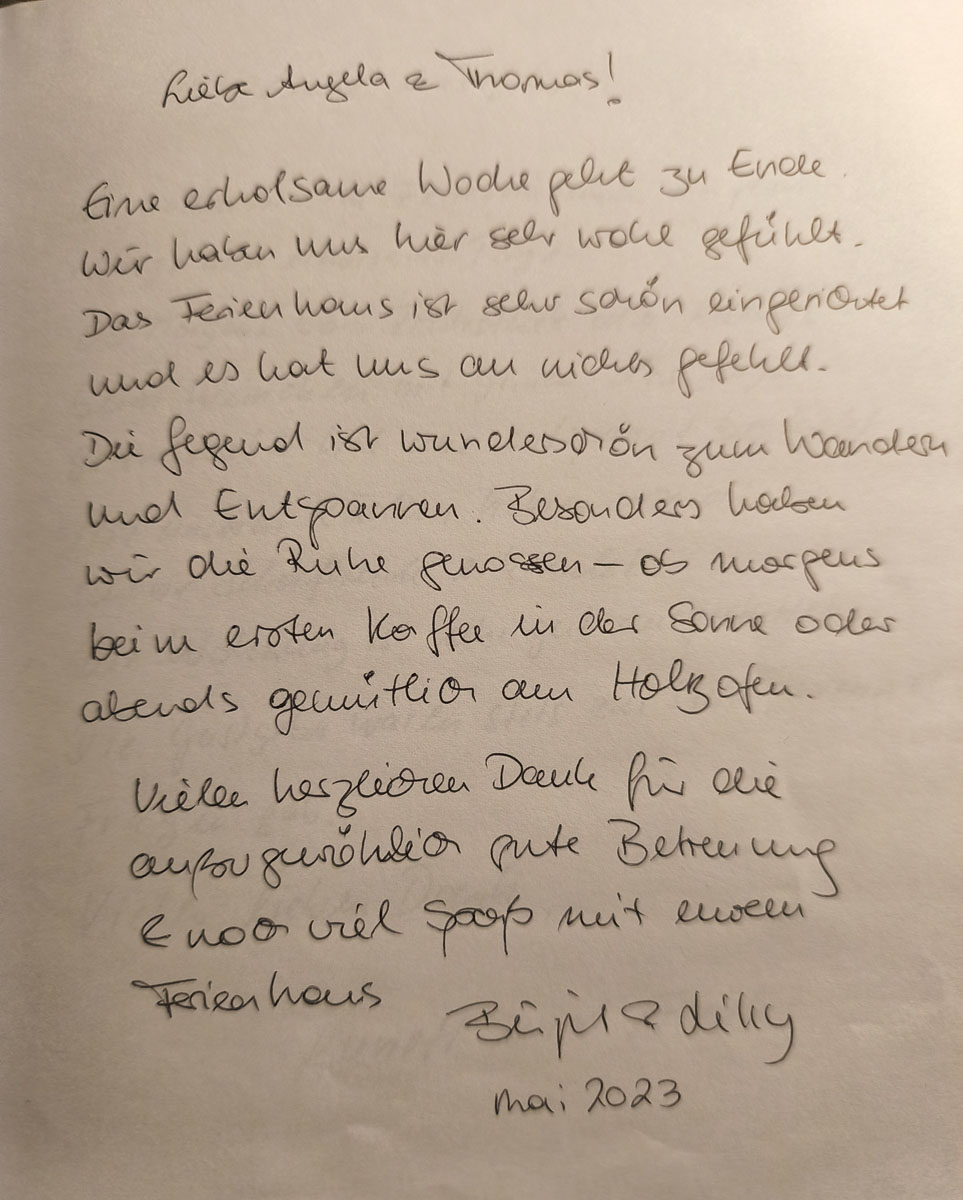 Liebe Angela & Thomas!
Eine erholsame Woche geht zu Ende.
Wir haben uns hier sehr wohl gefühlt.
Das Ferienhaus ist sehr schön eingerichtet
und es hat uns an nichts gefehlt.
Die Gegend ist wunderschön zum Wandern
und Entspannen. Besonders haben
wir die Ruhe genossen – ob morgens
beim ersten Kaffee in der Sonne oder
abends gemütlich am Holzofen.
Vielen herzlichen Dank für die
außergewöhnlich gute Betreuung
& noch viel Spaß mit eurem
Ferienhaus
Birgit & Lilly
Mai 2023